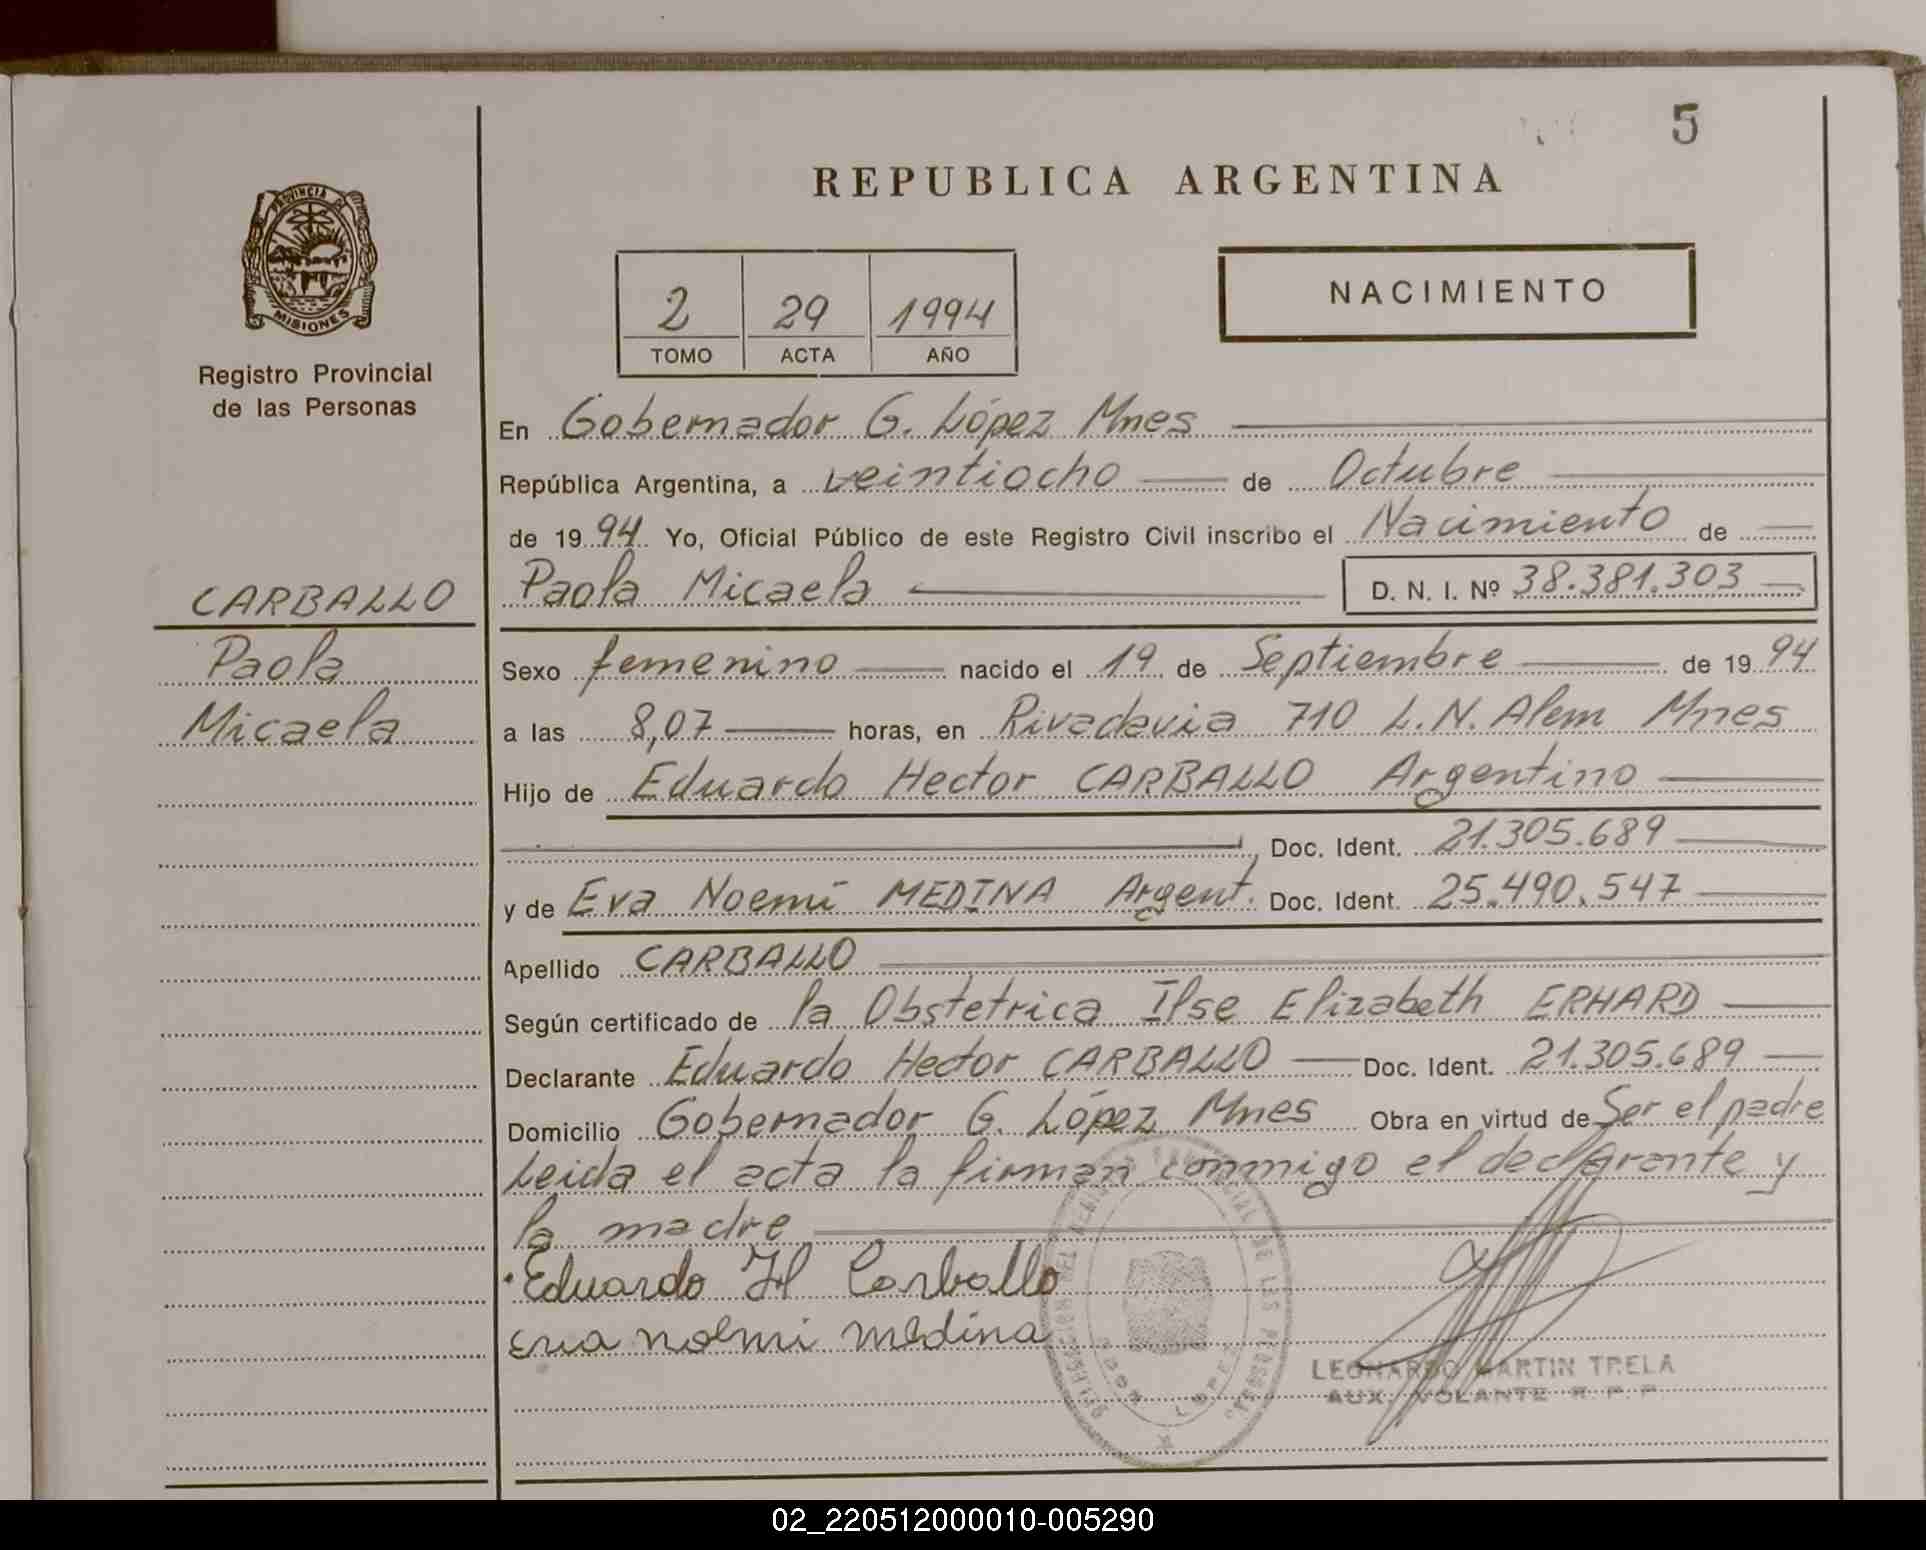 5
REPUBLICA ARGENTINA
PROVINCIA DE
MISIONES
Registro Provincial
de las Personas
2 29 1994
TOMO ACTA AÑO
NACIMIENTO
En Gobernador G. López Mnes
República Argentina, a veintiocho de Octubre
de 1994 Yo, Oficial Público de este Registro Civil inscribo el Nacimiento de
Paola Micaela D. N. I. Nº 38.381.303
CARBALLO
Paola
Micaela
Sexo femenino nacido el 19 de Septiembre de 1994
a las 8,07 horas, en Rivadavia 710 L.N. Alem Mnes
Hijo de Eduardo Hector CARBALLO Argentino
, Doc. Ident. 21.305.689
y de Eva Noemí MEDINA Argent. Doc. Ident. 25.490.547
Apellido CARBALLO
Según certificado de la Obstetrica Ilse Elizabeth ERHARD
Declarante Eduardo Hector CARBALLO Doc. Ident. 21.305.689
Domicilio Gobernador G. López Mnes Obra en virtud de Ser el padre
Leida el acta la firman conmigo el declarante y
la madre
Eduardo H Carballo
Eva noemi medina
LEONARDO MARTIN TRELA
AUX. VOLANTE R. P. P.
02_220512000010-005290